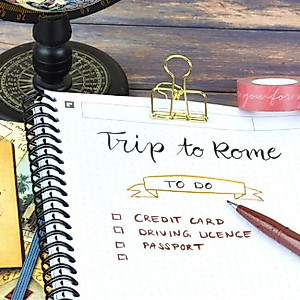 your for
Trip to Rome
TO DO
CREDIT CARD
DRIVING LICENCE
PASSPORT